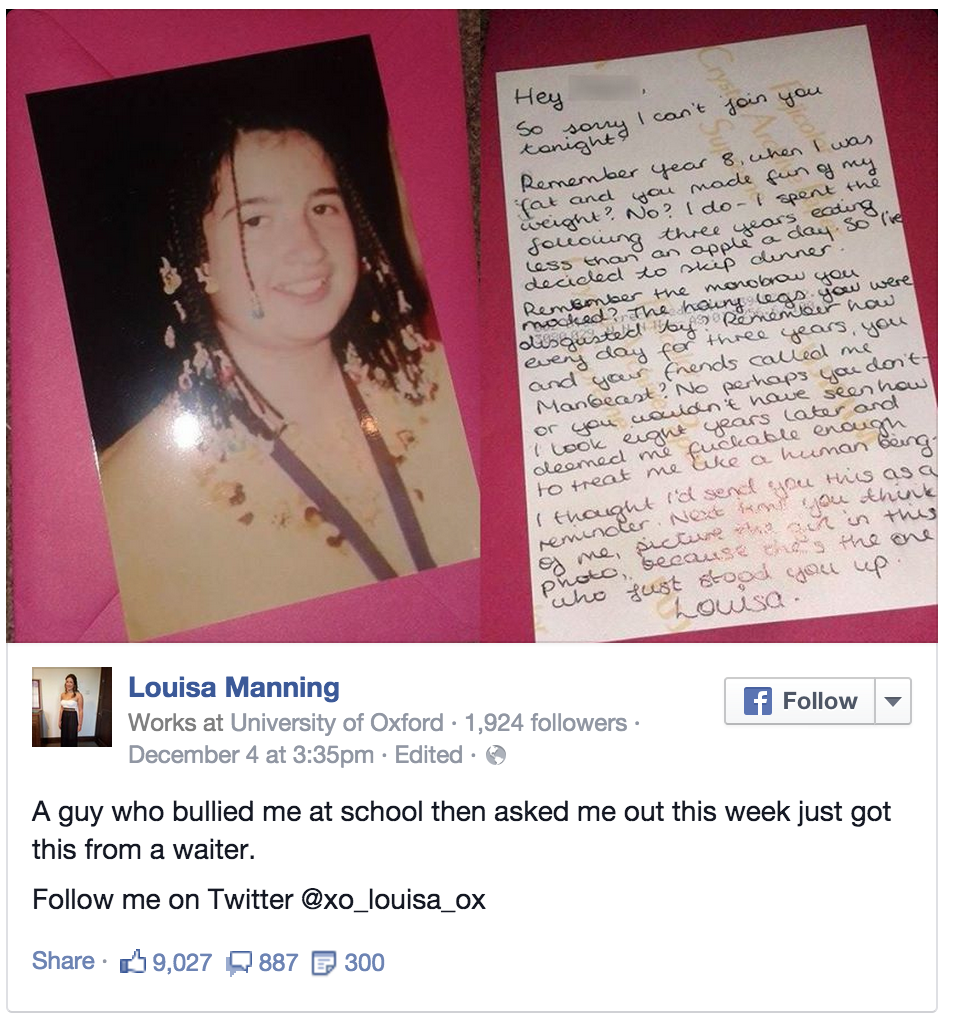 Hey
So sorry I can't join you
tonight?
Remember year 8, when I was
fat and you made fun of my
weight? No? I do - I spent the
following three years eating
less than an apple a day. So I've
decided to skip dinner.
Remember the monobrow you
mocked? The hairy legs you were
disgusted by? Remember how
every day for three years, you
and your friends called me
Manbeast? No perhaps you don't -
or you wouldn't have seen how
I look eight years later and
deemed me fuckable enough
to treat me like a human being.
I thought I'd send you this as a
reminder. Next time you think
of me, picture the girl in this
photo, because she's the one
who just stood you up.
Louisa.
Louisa Manning
Follow
Works at University of Oxford · 1,924 followers ·
December 4 at 3:35pm · Edited ·
A guy who bullied me at school then asked me out this week just got
this from a waiter.
Follow me on Twitter @xo_louisa_ox
Share · 9,027 887 300